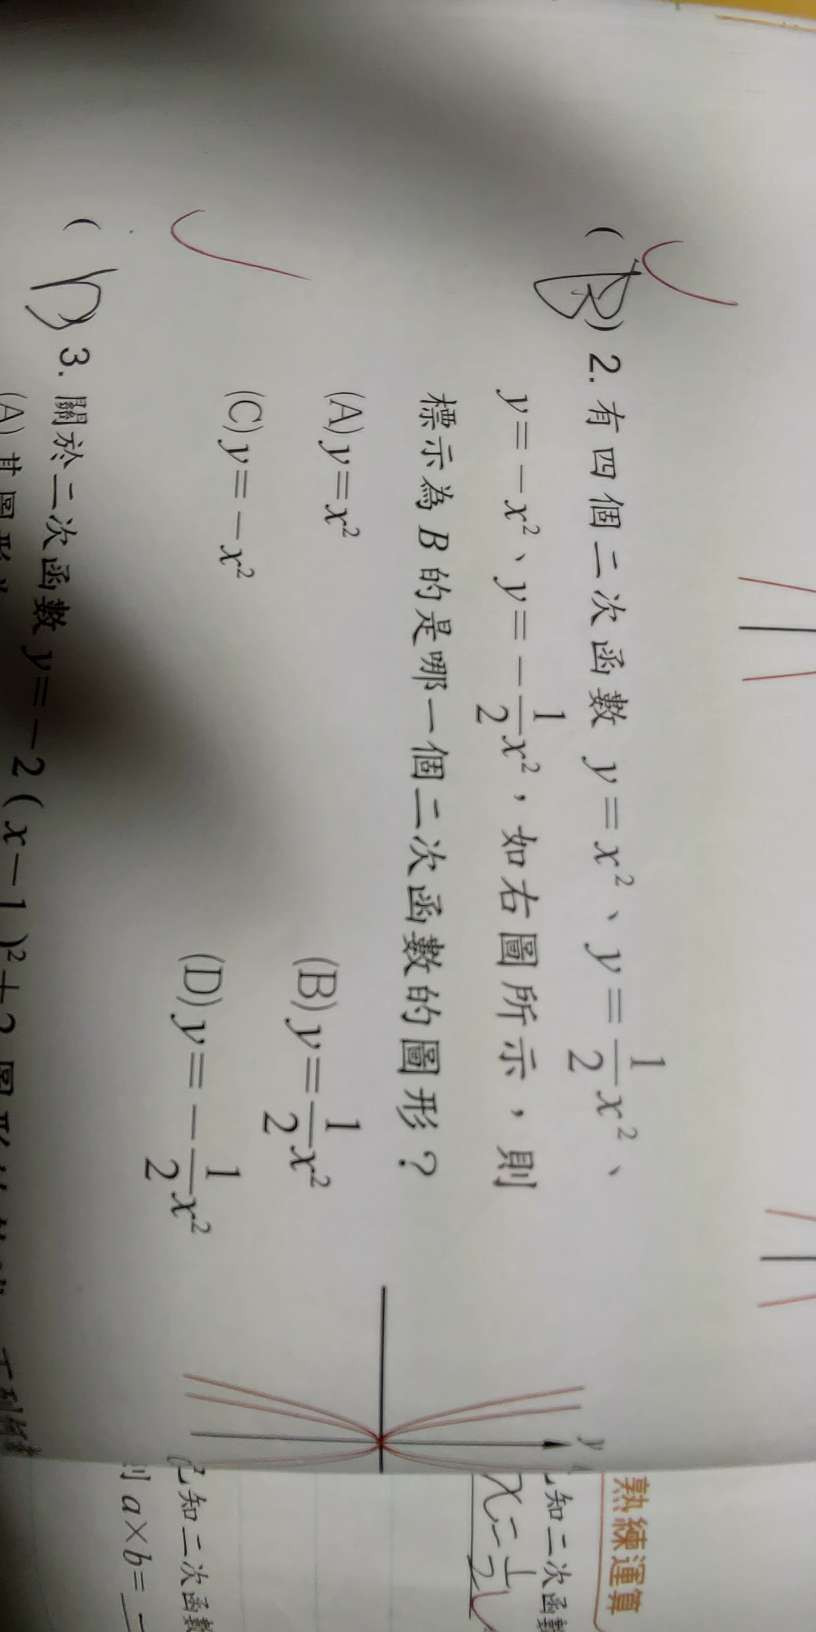 (B) 2. 有四個二次函數 y=x²、y=\frac{1}{2}x²、
y=-x²、y=-\frac{1}{2}x²,如右圖所示,則
標示為 B 的是哪一個二次函數的圖形?
(A) y=x² (B) y=\frac{1}{2}x²
(C) y=-x² (D) y=-\frac{1}{2}x²
(D) 3. 關於二次函數 y=-2(x-1)²+2 圖形
(A) 其圖形
y
熟練運算
知二次函數
x=\frac{1}{2}
已知二次函數
則 a×b=